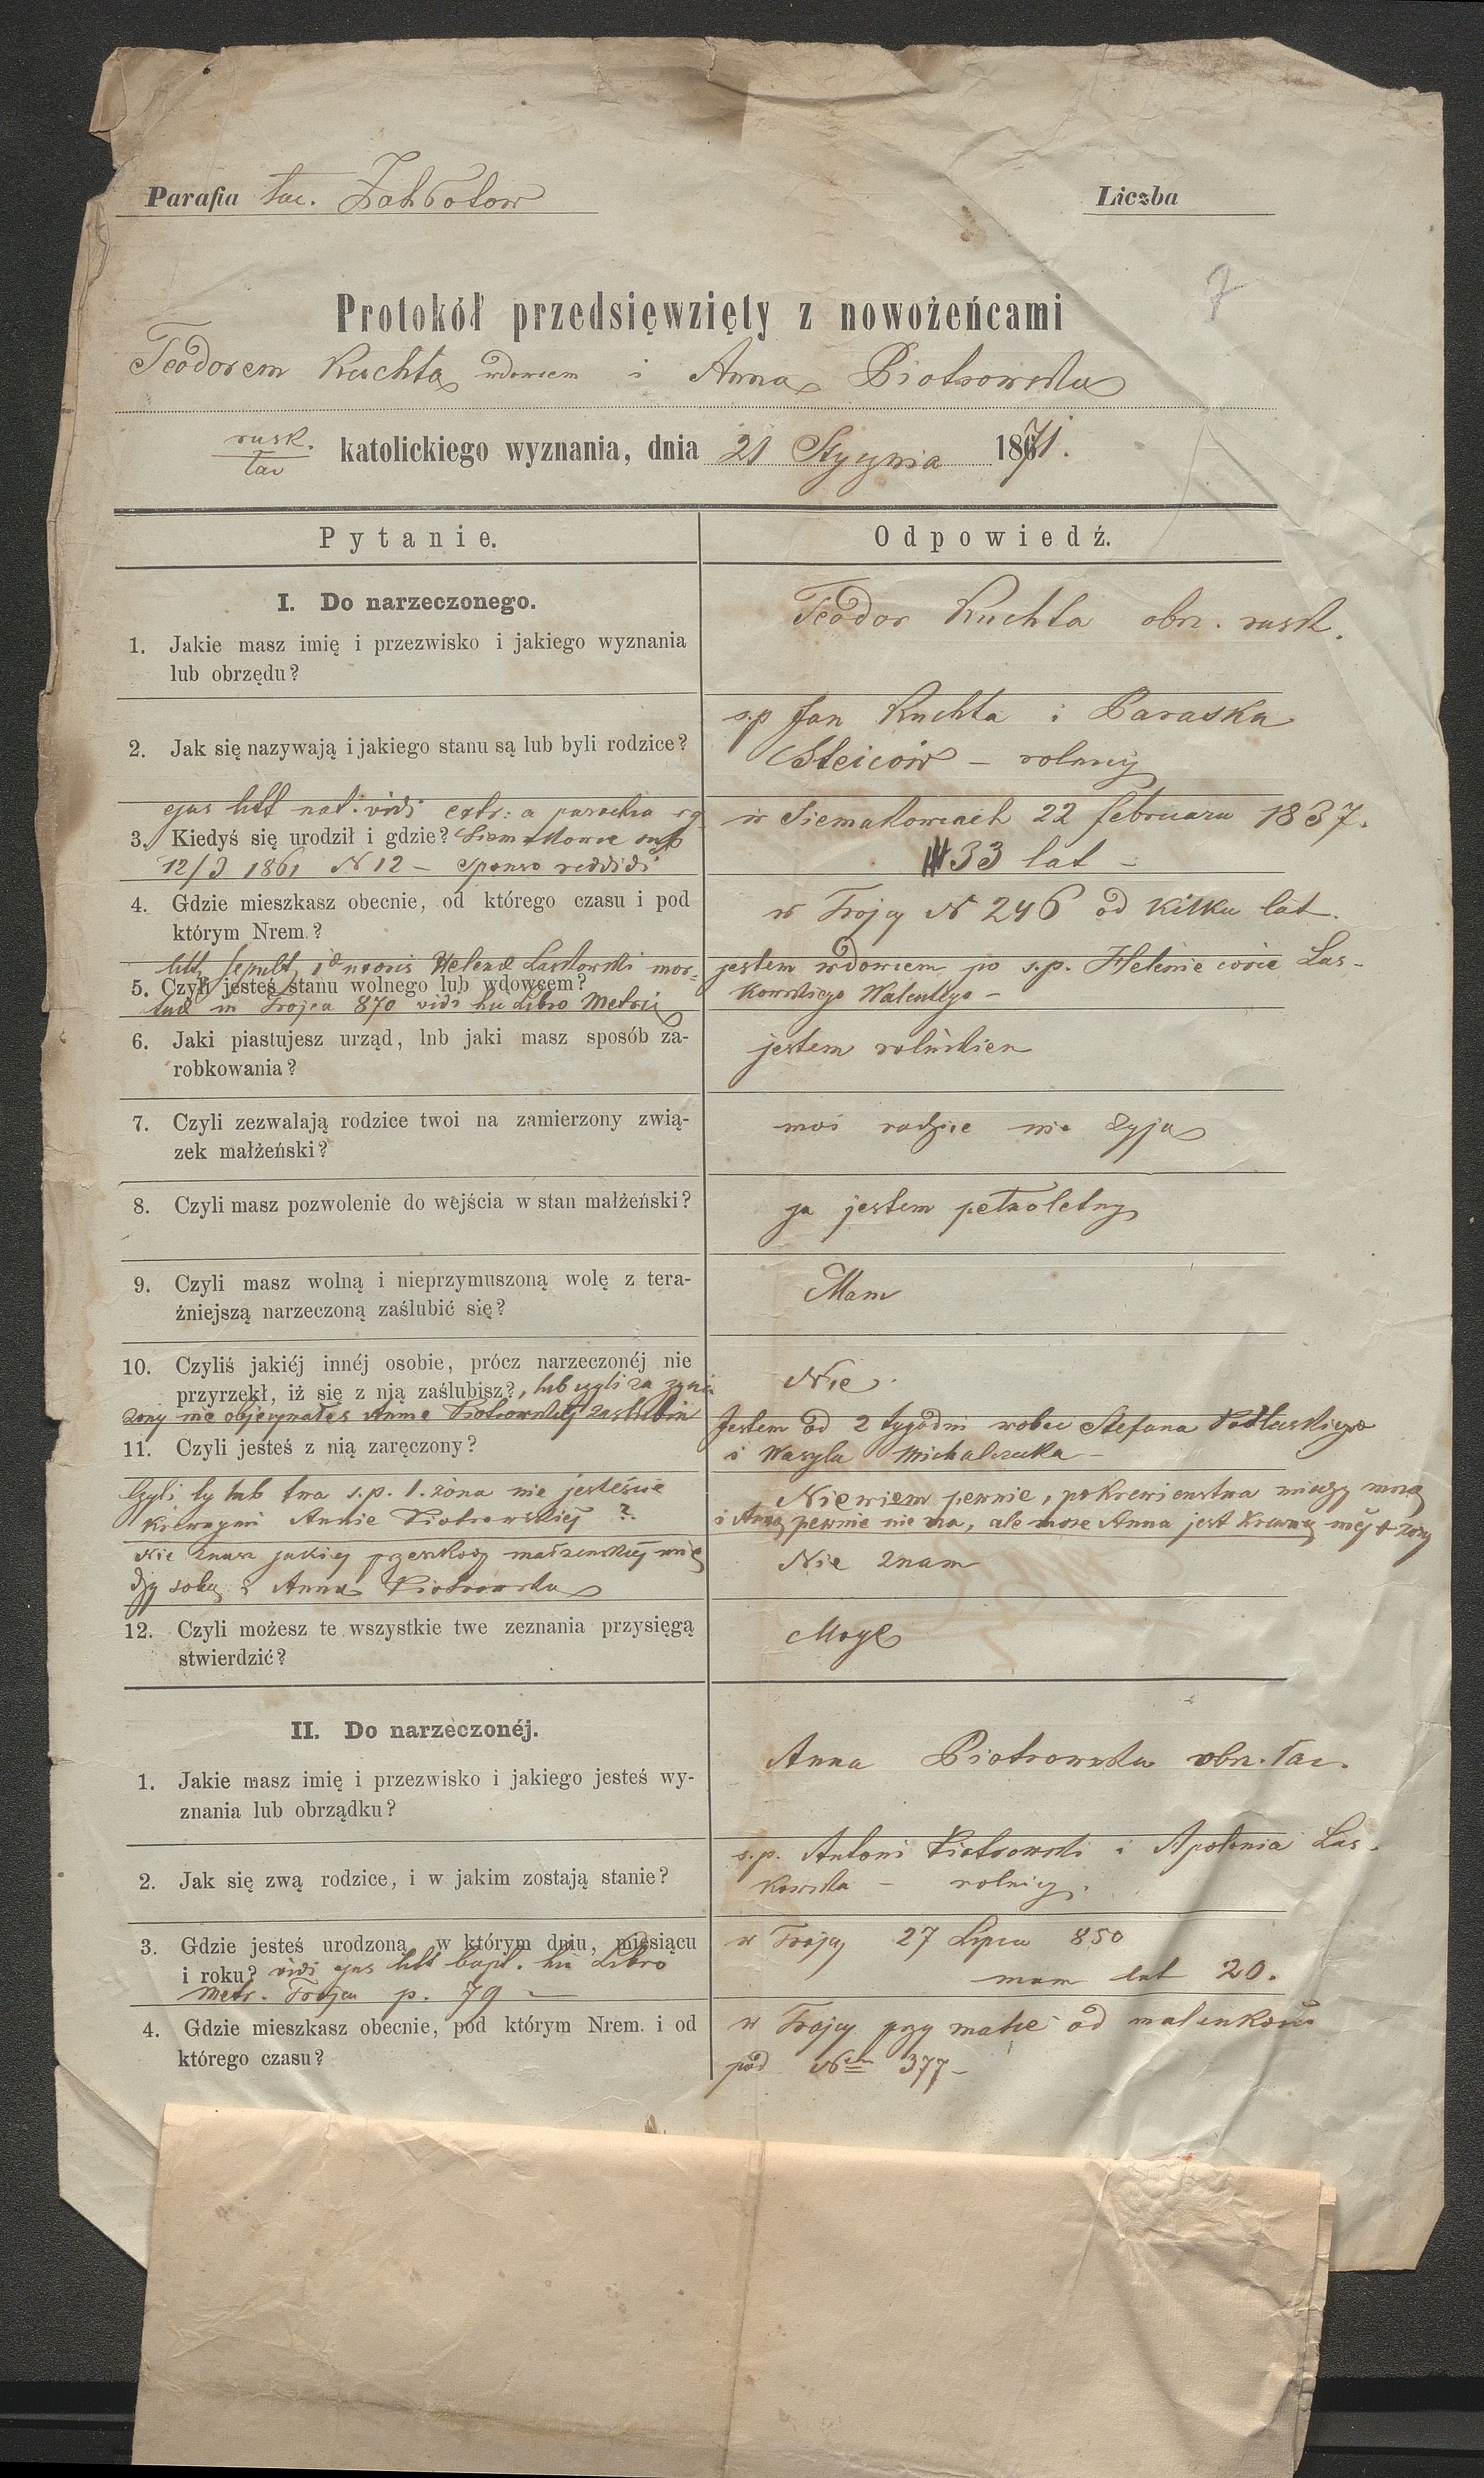 Parafia łac. Zabłotow
Liczba
7
Protokół przedsięwzięty z nowożeńcami
Teodorem Kuchta wdowcem i Anna Piotrowska
rusk.
łac katolickiego wyznania, dnia 21 Stycznia 1871.
Pytanie.
Odpowiedź.
I. Do narzeczonego.
1. Jakie masz imię i przezwisko i jakiego wyznania
lub obrzędu?
Teodor Kuchta obrz. rusk.
2. Jak się nazywają i jakiego stanu są lub byli rodzice?
s.p Jan Kuchta i Paraska
Steiców – rolnicy
ejus litt nat. vidi extr: a parocho rg
3. Kiedyś się urodził i gdzie? Siemakowce
12/3 1861 N 12 – sponso reddidi
w Siemakowcach 22 februara 1837.
33 lat –
4. Gdzie mieszkasz obecnie, od którego czasu i pod
którym Nrem.?
w Trojcy N 246 od kilku lat.
litt sepult 1ae uxoris Helenae Laskowski mor-
5. Czyli jesteś stanu wolnego lub wdowcem?
tuae in Trojca 870 vidi hic Libro Metric
jestem wdowcem po s.p. Helenie córce Las-
kowskiego Walentego –
6. Jaki piastujesz urząd, lnb jaki masz sposób za-
robkowania?
jestem rolnikiem
7. Czyli zezwalają rodzice twoi na zamierzony zwią-
zek małżeński?
moi rodzice nie żyją
8. Czyli masz pozwolenie do wejścia w stan małżeński?
ja jestem pełnoletny
9. Czyli masz wolną i nieprzymuszoną wolę z tera-
źniejszą narzeczoną zaślubić się?
Mam
10. Czyliś jakiéj innéj osobie, prócz narzeczonéj nie
przyrzekł, iż się z nią zaślubisz?, lub czyli za życia
żony nie objecynałeś Annie Piotrowskiej zaslubin
Nie.
11. Czyli jesteś z nią zaręczony?
Jestem od 2 tygodni wobec Stefana Podłuskiego
i Wasyla Michalczuka –
Czyli ty lub twa s.p. 1. żona nie jesteście
krewnymi Annie Piotrowskiej ?
Niewiem pewnie, pokrewienstwa miedzy mną
i Anną pewnie nie ma, ale może Anna jest krewną méj + żony
Nie znasz jakiej przeszkody małzenskiej mię
dzy sobą i Anną Piotrowska
Nie znam
12. Czyli możesz te wszystkie twe zeznania przysięgą
stwierdzić?
Mogę
II. Do narzeczonéj.
1. Jakie masz imię i przezwisko i jakiego jesteś wy-
znania lub obrządku?
Anna Piotrowska obrz. łac.
2. Jak się zwą rodzice, i w jakim zostają stanie?
s.p. Antoni Piotrowski i Apolonia Las-
kowska – rolnicy.
3. Gdzie jesteś urodzona, w którym dniu, miesiącu
i roku? vidi ejus litt bapt. hic Libro
Metr. Trojca p. 79 –
w Trojcy 27 Lipca 850
mam lat 20.
4. Gdzie mieszkasz obecnie, pod którym Nrem. i od
którego czasu?
w Trojcy przy matce od malenkości
pod Nem 377 –